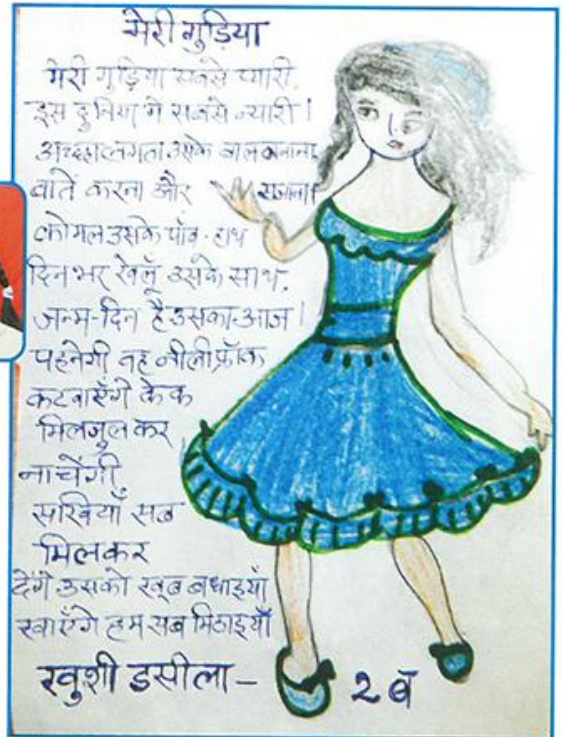 मेरी गुड़िया
मेरी गुड़िया सबसे प्यारी,
इस दुनिया मे सबसे न्यारी।
अच्छा लगता उसके बाल बनाना,
बातें करना और सजाना।
कोमल उसके पाँव-हाथ
दिनभर खेलूँ उसके साथ,
जन्म-दिन है उसका आज।
पहनेगी वह नीली फ्रॉक
कटवाएँगे केक
मिलजुल कर
नाचेंगी
सखियाँ सब
मिलकर
देंगे उसको खूब बधाइयाँ
खाएँगे हम सब मिठाइयाँ
खुशी डसीला – 2 ब